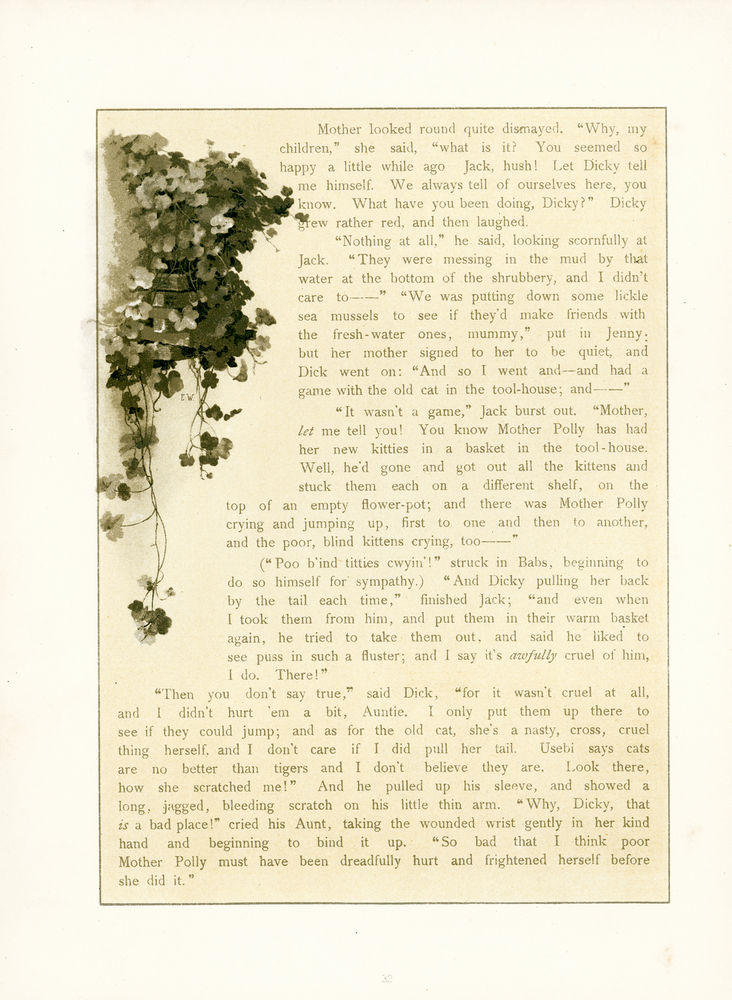 Mother looked round quite dismayed. “Why, my
children,” she said, “what is it? You seemed so
happy a little while ago Jack, hush! Let Dicky tell
me himself. We always tell of ourselves here, you
know. What have you been doing, Dicky?” Dicky
grew rather red, and then laughed.
“Nothing at all,” he said, looking scornfully at
Jack. “They were messing in the mud by that
water at the bottom of the shrubbery, and I didn’t
care to——” “We was putting down some lickle
sea mussels to see if they’d make friends with
the fresh-water ones, mummy,” put in Jenny;
but her mother signed to her to be quiet, and
Dick went on: “And so I went and—and had a
game with the old cat in the tool-house; and——”
“It wasn’t a game,” Jack burst out. “Mother,
let me tell you! You know Mother Polly has had
her new kitties in a basket in the tool-house.
Well, he’d gone and got out all the kittens and
stuck them each on a different shelf, on the
top of an empty flower-pot; and there was Mother Polly
crying and jumping up, first to one and then to another,
and the poor, blind kittens crying, too——”
(“Poo b’ind titties cwyin’!” struck in Babs, beginning to
do so himself for sympathy.) “And Dicky pulling her back
by the tail each time,” finished Jack; “and even when
I took them from him, and put them in their warm basket
again, he tried to take them out, and said he liked to
see puss in such a fluster; and I say it’s awfully cruel of him,
I do. There!”
“Then you don’t say true,” said Dick, “for it wasn’t cruel at all,
and I didn’t hurt ’em a bit, Auntie. I only put them up there to
see if they could jump; and as for the old cat, she’s a nasty, cross, cruel
thing herself, and I don’t care if I did pull her tail. Usebi says cats
are no better than tigers and I don’t believe they are. Look there,
how she scratched me!” And he pulled up his sleeve, and showed a
long, jagged, bleeding scratch on his little thin arm. “Why, Dicky, that
is a bad place!” cried his Aunt, taking the wounded wrist gently in her kind
hand and beginning to bind it up. “So bad that I think poor
Mother Polly must have been dreadfully hurt and frightened herself before
she did it.”
E.W.
32